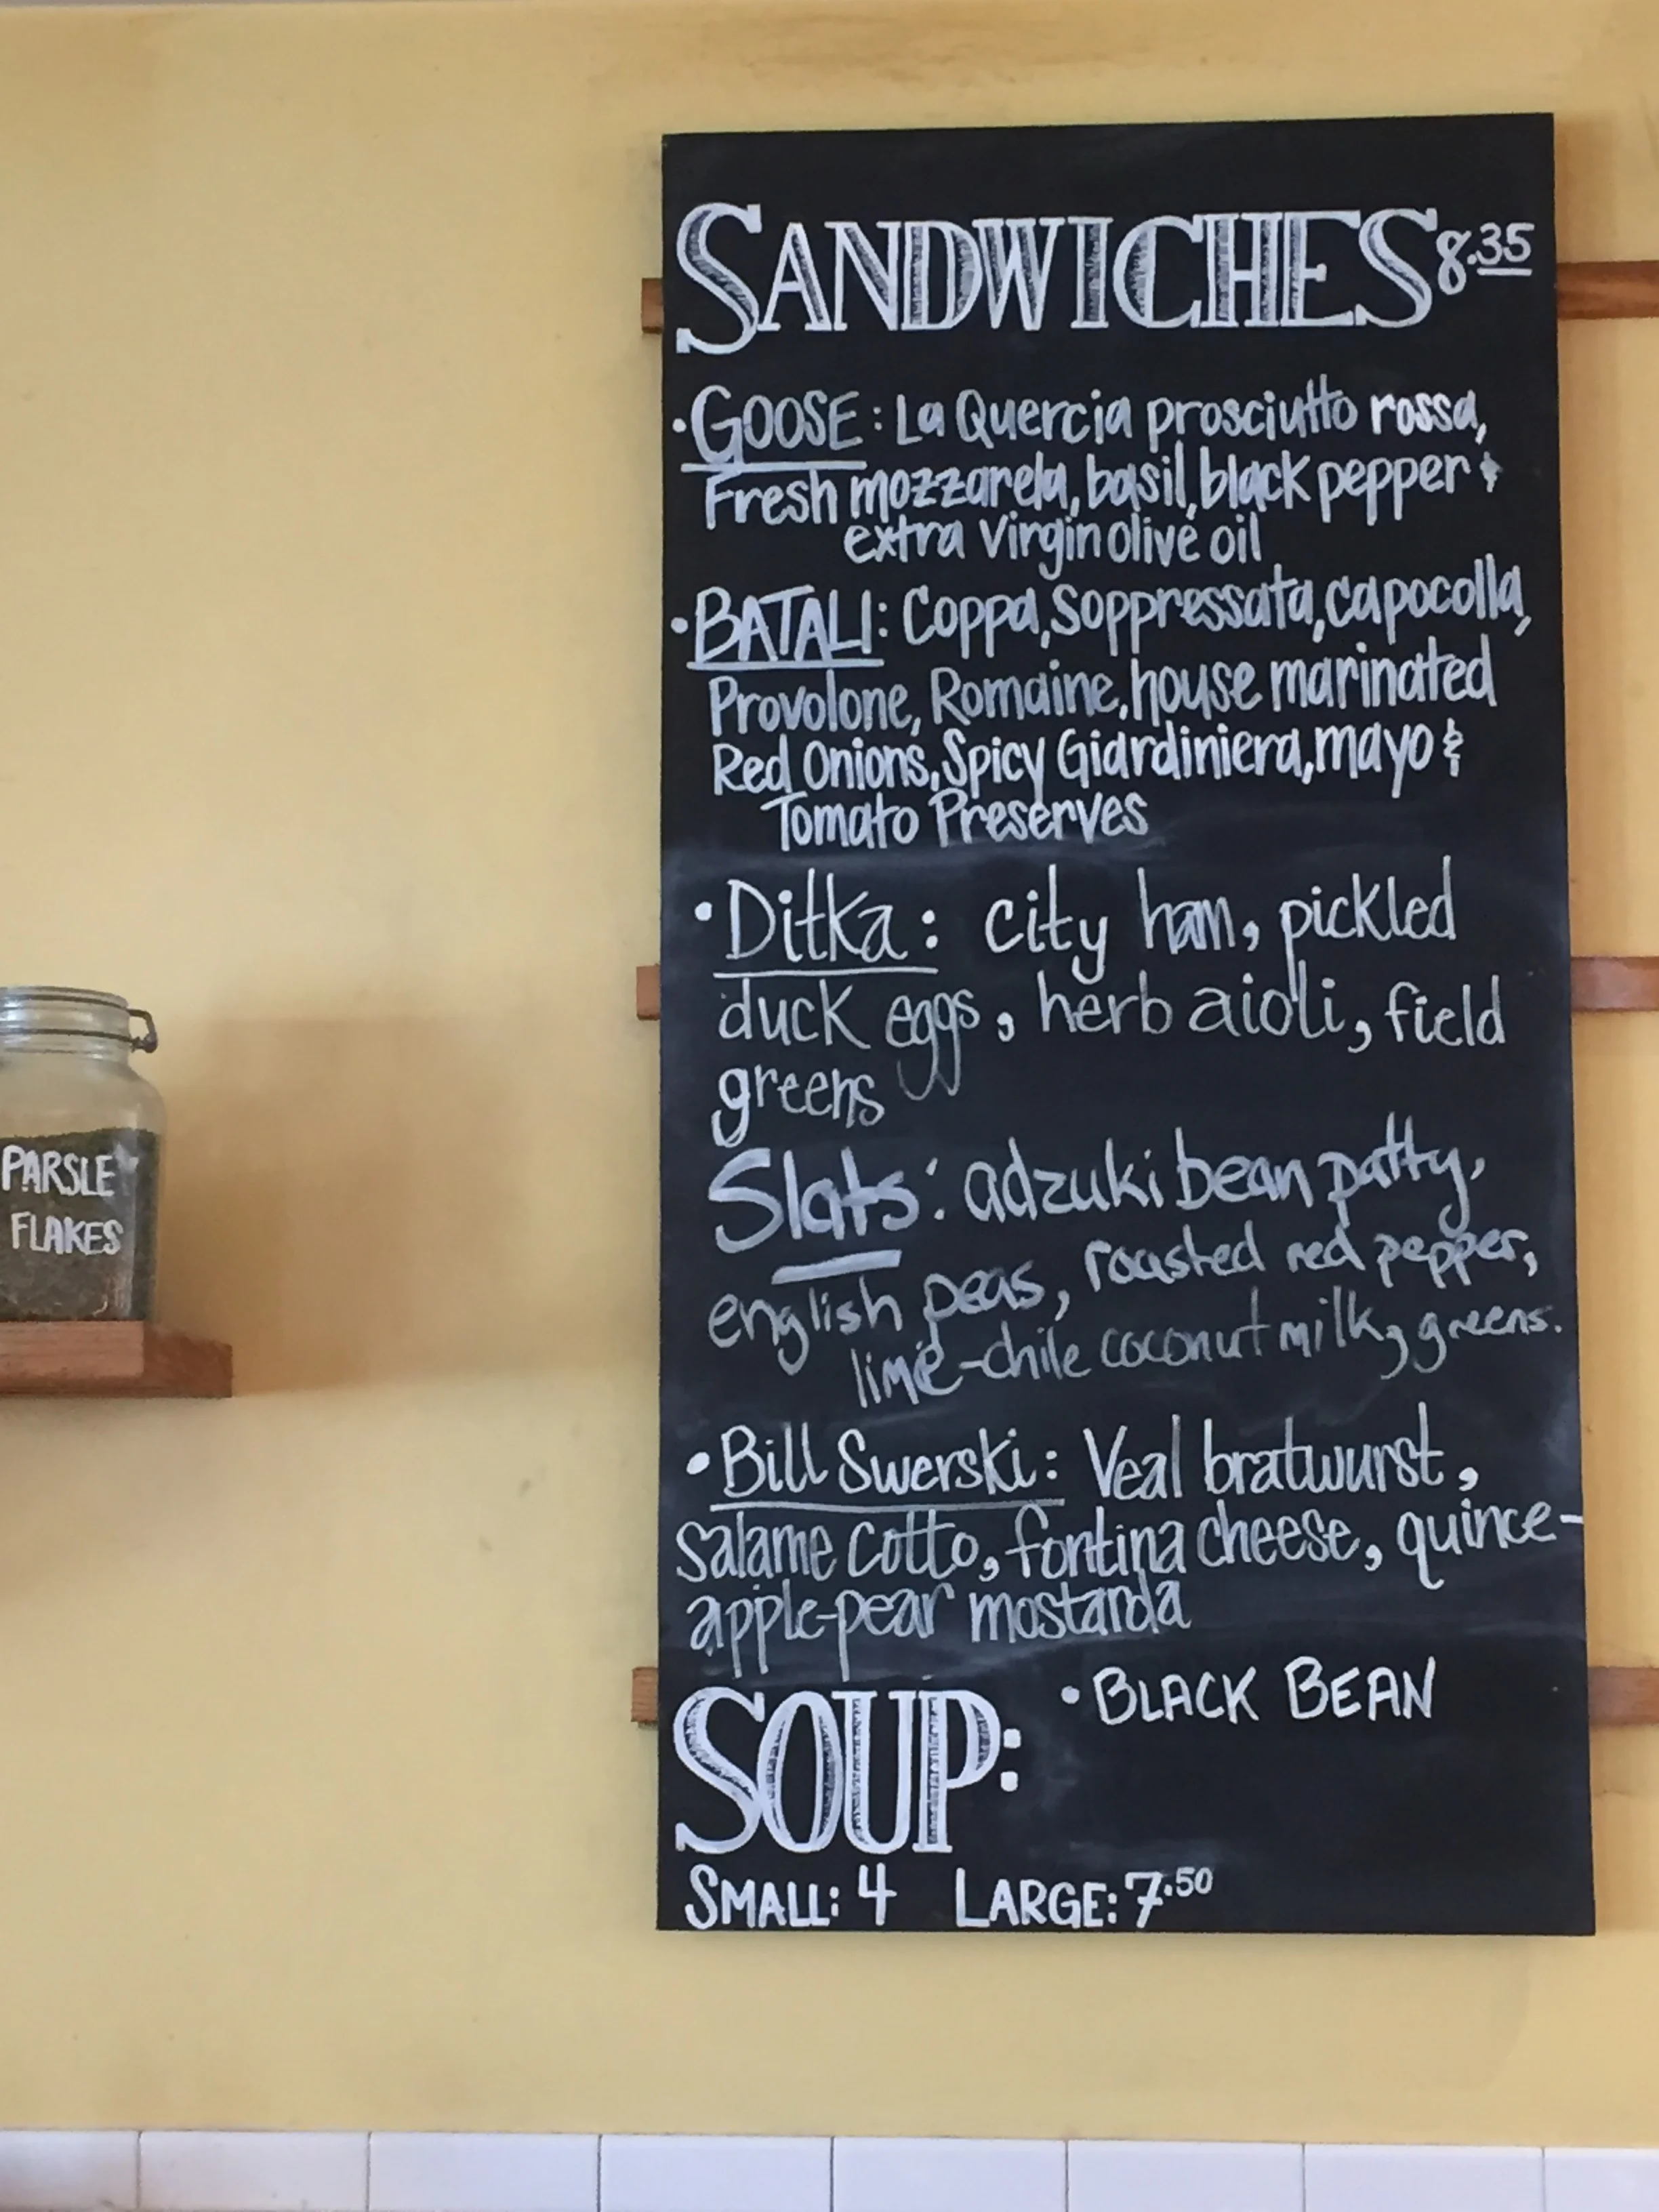 SANDWICHES 8.35
• GOOSE: La Quercia prosciutto rossa,
Fresh mozzarela, basil, black pepper &
extra virgin olive oil
• BATALI: Coppa, Soppressata, capocolla,
Provolone, Romaine, house marinated
Red Onions, Spicy Giardiniera, mayo &
Tomato Preserves
• Ditka: city ham, pickled
duck eggs, herb aioli, field
greens
Slats: adzuki bean patty,
english peas, roasted red pepper,
lime-chile coconut milk, greens.
• Bill Swerski: Veal bratwurst,
salame cotto, fontina cheese, quince-
apple-pear mostarda
SOUP: • BLACK BEAN
SMALL: 4 LARGE: 7.50
PARSLEY
FLAKES